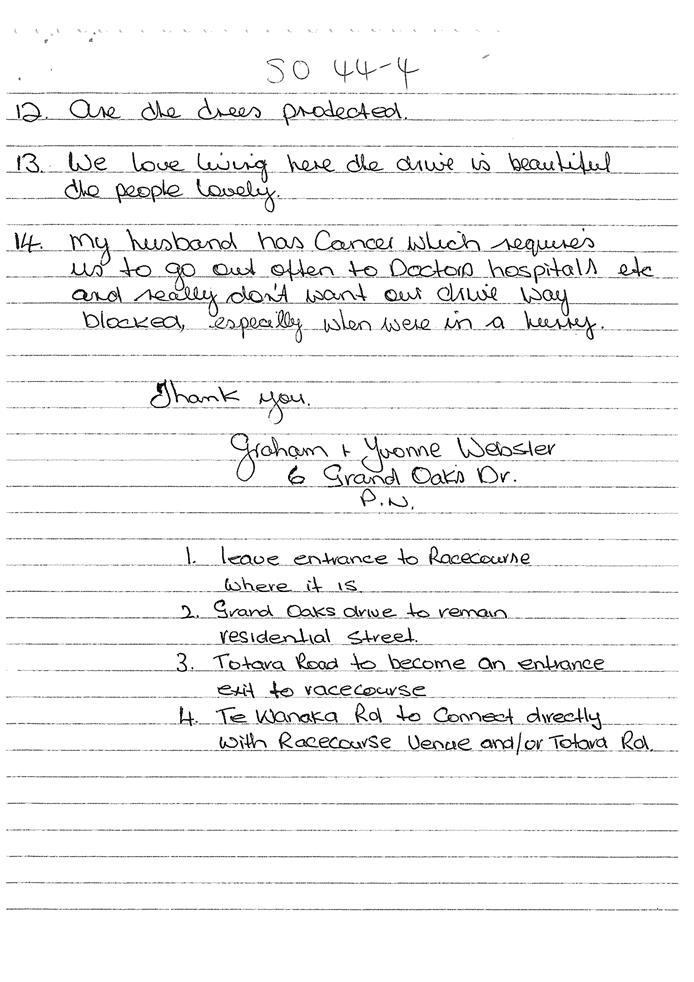 SO 44-4
12. Are the trees protected.
13. We love living here the drive is beautiful
the people lovely.
14. My husband has Cancer which requires
us to go out often to Doctors hospitals etc
and really don't want our drive way
blocked, especially when were in a hurry.
Thank you.
Graham + Yvonne Webster
6 Grand Oaks Dr.
P.N.
1. leave entrance to Racecourse
where it is.
2. Grand Oaks drive to remain
residential street.
3. Totara Road to become an entrance
exit to racecourse
4. Te Wanaka Rd to Connect directly
with Racecourse Venue and/or Totara Rd.